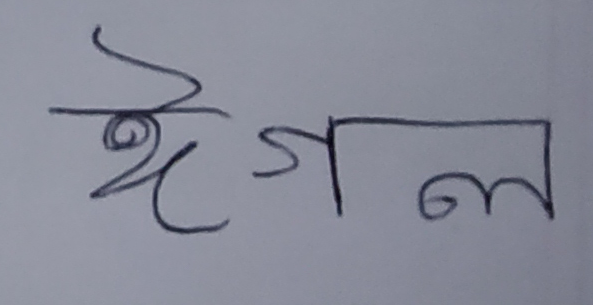 ঈগল